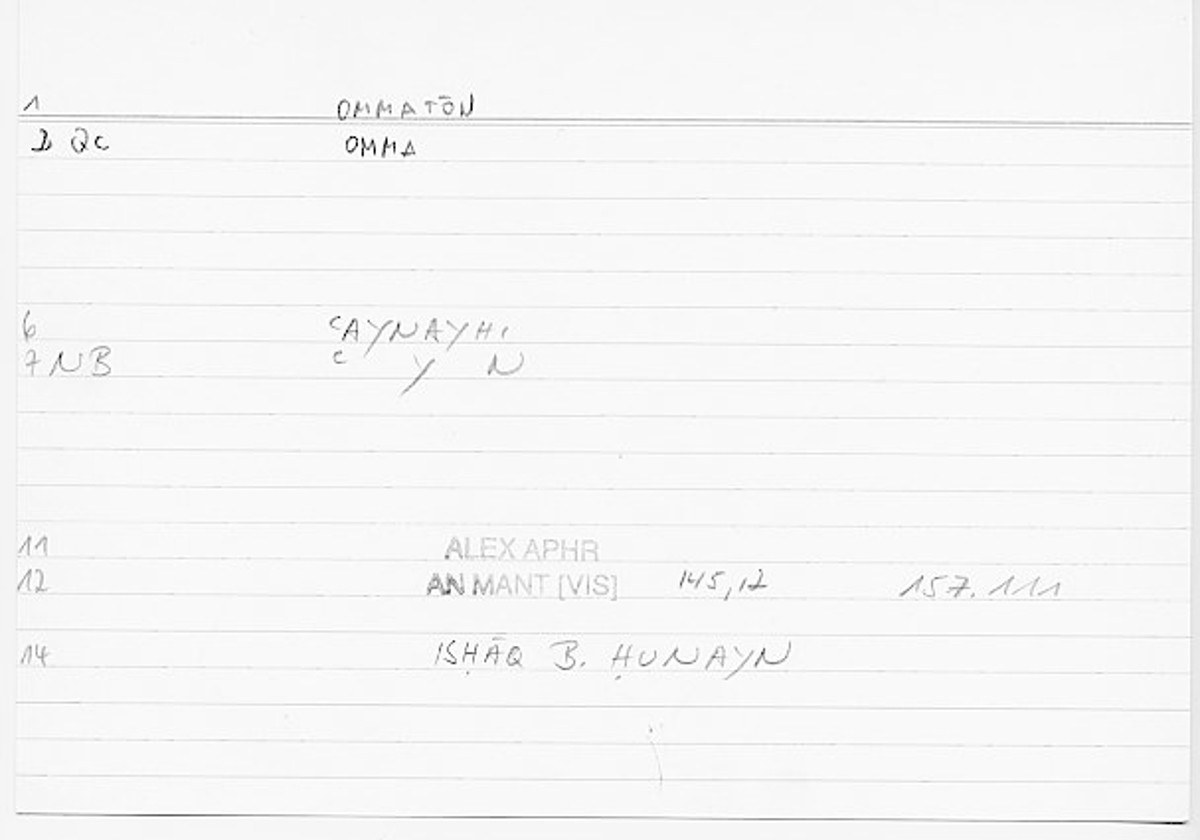 1 OMMATŌN
D QC OMMA
6 ʿAYNAYHI
7 NB ʿ Y N
11 ALEX APHR
12 AN MANT [VIS] 145,12 157.111
14 ISḤĀQ B. ḤUNAYN